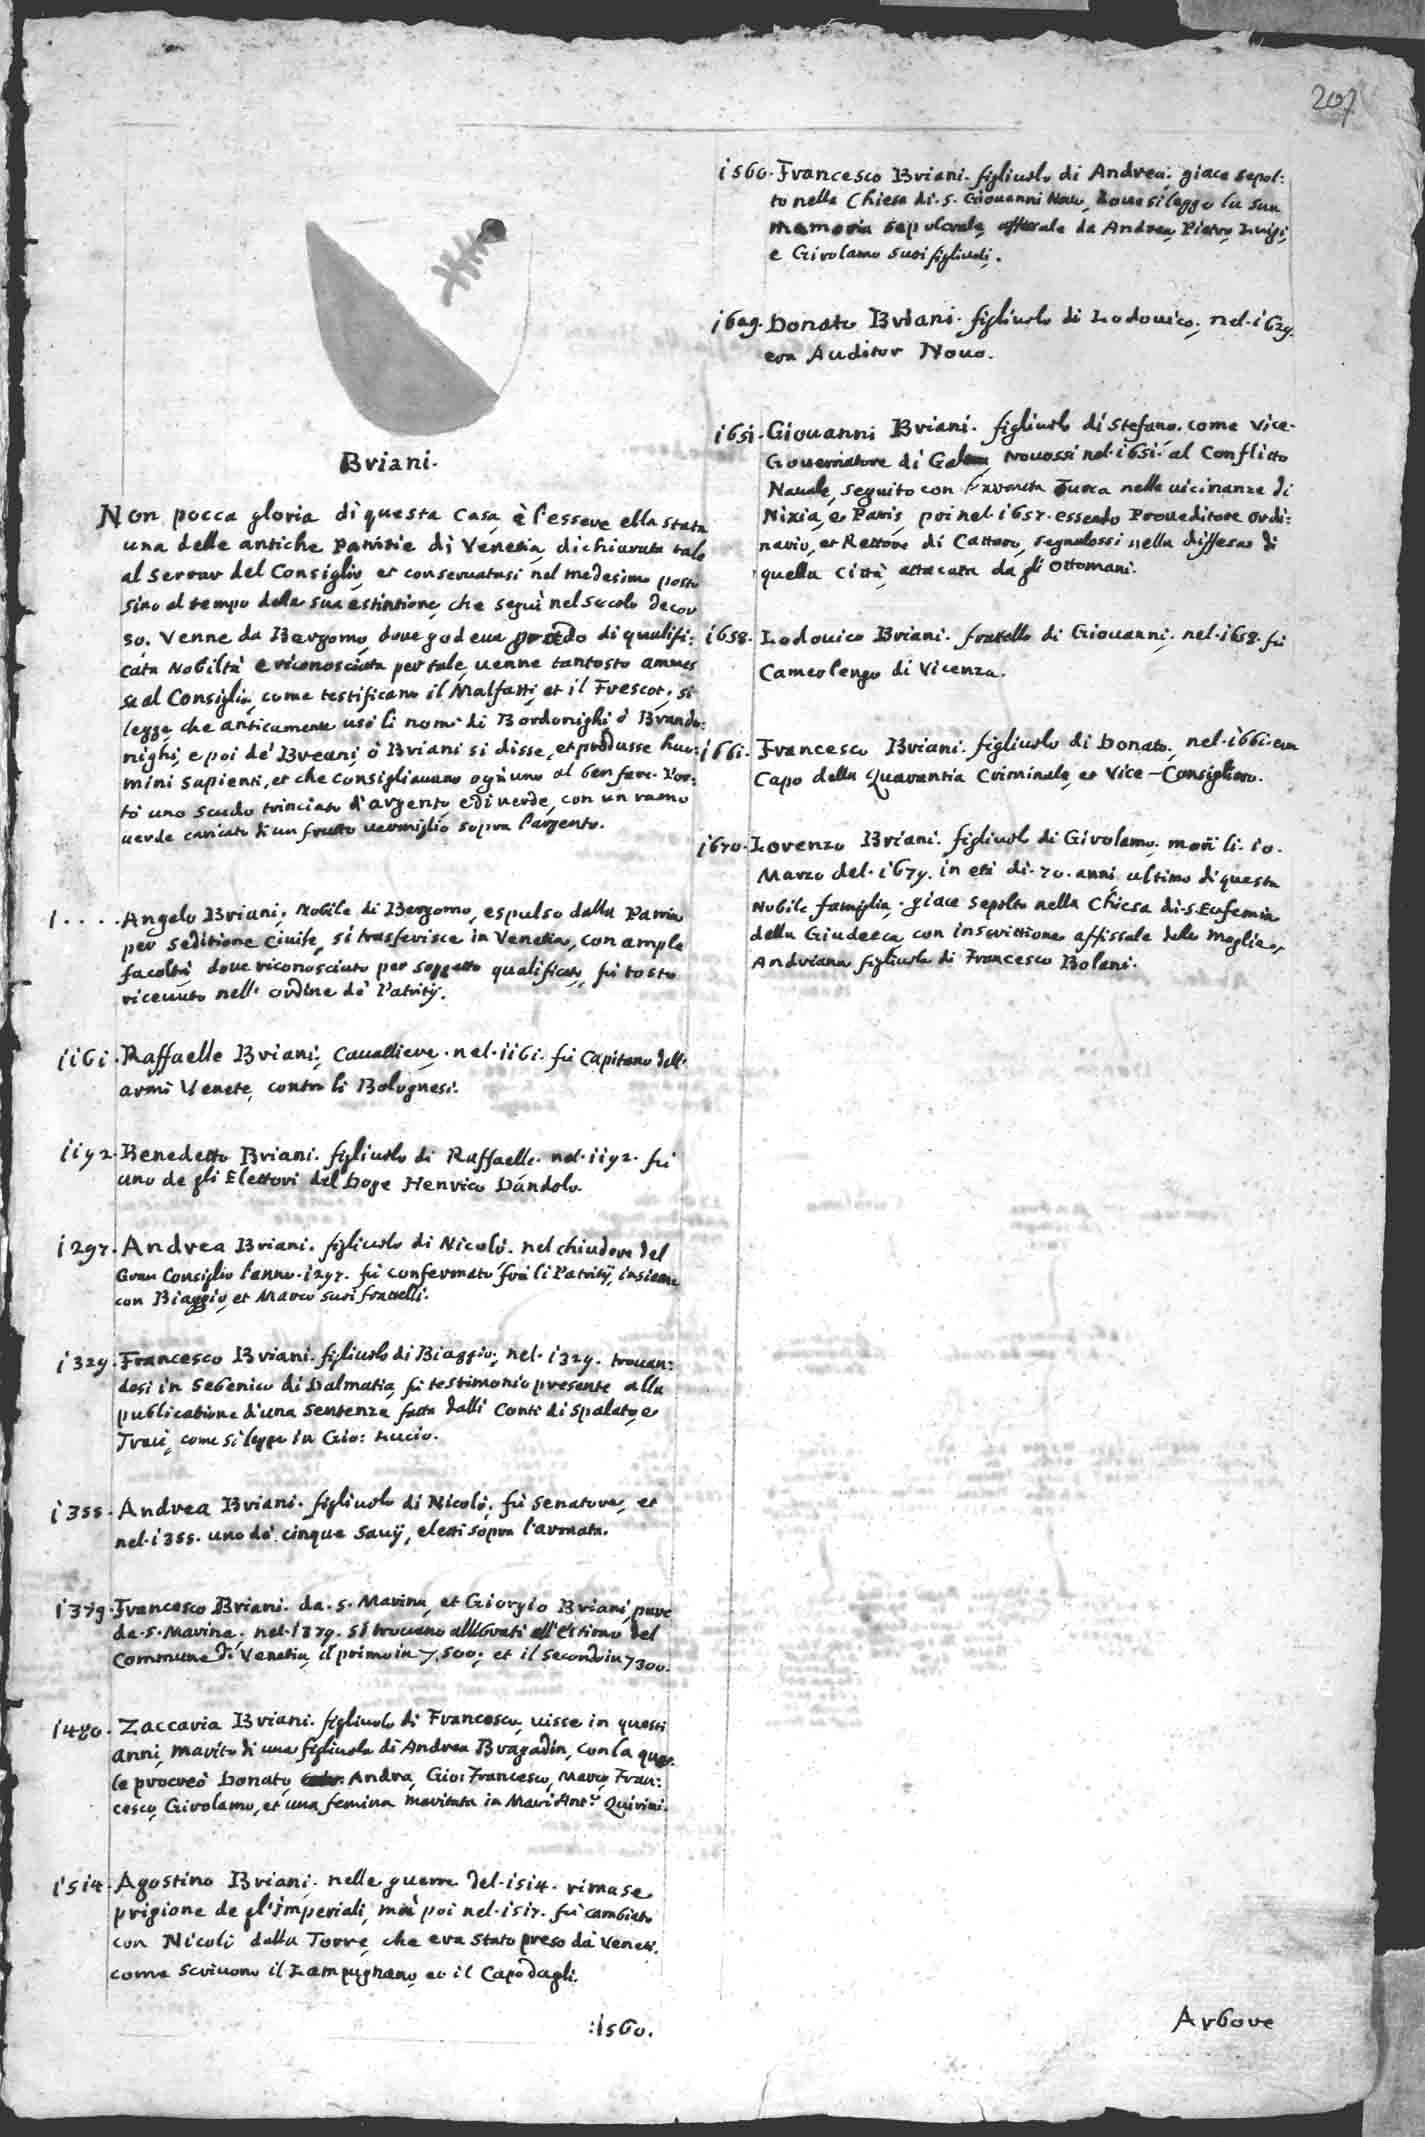 207
Briani.
Non pocca gloria di questa Casa, è l'essere ella stata
una delle antiche Patritie di Venetia, dichiarata tale
al Serrar del Consiglio, et conservatasi nel medesimo posto
sino al tempo della sua estintione, che seguì nel Secolo decor
so. Venne da Bergomo, doue godeua grado di qualifi:
cata Nobiltà e riconosciuta per tale, uenne tantosto ammes
sa al Consiglio, come testificano il Malfatti, et il Frescot, si
legge, che anticamente usò li nomi di Bordonighi ò Brando:
nighi, e poi de' Breani, ò Briani si disse, et produsse huo:
mini sapienti, et che consigliauano ogn'uno al ben fare. Por:
tò uno Scudo trinciato d'argento, e di uerde, con un ramo
uerde caricato di un frutto uermiglio sopra l'argento.
1 . . . . Angelo Briani, Nobile di Bergomo, espulso dalla Patria
per seditione Ciuile, si trasferisce in Venetia, con ample
facoltà, doue riconosciuto per soggetto qualificato, fù tosto
riceuuto nell' ordine de' Patritij.
1161. Raffaelle Briani, Caualliere. nel. 1161. fù Capitano dell'
armi Venete, contro li Bolognesi.
1192. Benedetto Briani. figliuolo di Raffaelle. nel. 1192. fù
uno de gli Elettori del Doge Henrico Dandolo.
1297. Andrea Briani. figliuolo di Nicolò. nel chiudere del
Gran Consiglio l'anno. 1297. fù confermato frà li Patritij, insieme
con Biaggio, et Marco suoi fratelli.
1329. Francesco Briani. figliuolo di Biaggio, nel. 1329. trouan:
dosi in Sebenico di Dalmatia, fù testimonio presente alla
publicatione d'una Sentenza fatta dalli Conti di Spalato, e
Traù, come si legge in Gio: Lucio.
1355. Andrea Briani. figliuolo di Nicolò, fù Senatore, et
nel. 1355. uno de' cinque Sauij, eletti sopra l'armata.
1379. Francesco Briani. da. S. Marina, et Giorgio Briani, pure
da. S. Marina. nel. 1379. si trouano allibrati all'Estimo del
Commune di Venetia, il primo in 7.500; et il Secondo in 7300.
1480. Zaccaria Briani. figliuolo di Francesco, uisse in questi
anni, marito di una figliuola di Andrea Bragadin, con la qua:
le procreò Donato, Andra, Gio: Francesco, Marco, Fran:
cesco, Girolamo, et una femina maritata in Mari'Ant.º Quirini.
1514. Agostino Briani. nelle guerre del. 1514. rimase
prigione de gl'Imperiali, mà poi nel. 1517. fù cambiato
con Nicolò dalla Torre, che era stato preso da' Veneti,
come scriuono il Lampugnano, et il Capodagli.
:1560.
1560. Francesco Briani. figliuolo di Andrea. giace sepol:
to nella Chiesa di. S. Giouanni Nouo, doue si legge la sua
memoria sepulcrale, da Andrea, Pietro, Luigi,
e Girolamo suoi figliuoli.
1629. Donato Briani. figliuolo di Lodouico, nel. 1629.
era Auditor Nouo.
1651. Giouanni Briani. figliuolo di Stefano. come Vice-
Gouernatore di Galera trouossi nel. 1651. al Conflitto
Nauale, seguito con l'Armata Turca nelle uicinanze di
Nixia, e Paris, poi nel. 1657. essendo Proueditore ordi:
nario, et Rettore di Cattaro, segnalossi nella diffesa di
quella Città, attacata da gli Ottomani.
1658. Lodouico Briani. fratello di Giouanni, nel. 1658. fù
Camerlengo di Vicenza.
1661. Francesco Briani. figliuolo di Donato, nel. 1661. era
Capo della Quarantia Criminale, et Vice-Consigliero.
1670. Lorenzo Briani. figliuol di Girolamo, morì li. 10.
Marzo del. 1679. in età di. 70. anni ultimo di questa
Nobile famiglia. giace sepolto nella Chiesa di. S. Eufemia
della Giudecca, con inscrittione affissale dalla Moglie,
Andriana figliuola di Francesco Bolani.
Arbore